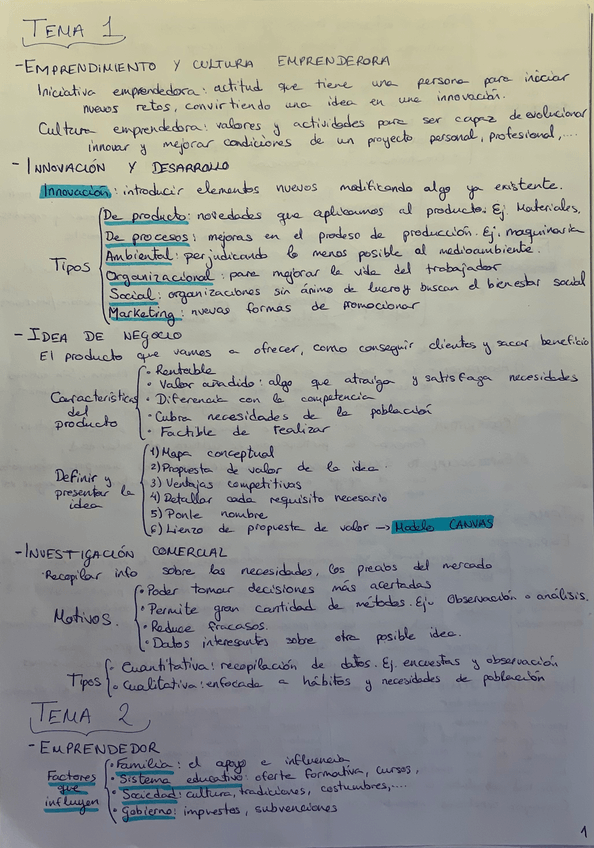 TEMA 1
- EMPRENDIMIENTO Y CULTURA EMPRENDERORA
Iniciativa emprendedora: actitud que tiene una persona para iniciar
nuevos retos, convirtiendo una idea en una innovación.
Cultura emprendedora: valores y actividades para ser capaz de evolucionar
innovar y mejorar condiciones de un proyecto personal, profesional,...
- INNOVACIÓN Y DESARROLLO
Innovación: introducir elementos nuevos modificando algo ya existente.
Tipos
De producto: novedades que aplicamos al producto. Ej. Materiales.
De procesos: mejoras en el proceso de producción. Ej. maquinaria
Ambiental: perjudicando lo menos posible al medioambiente.
Organizacional: para mejorar la vida del trabajador
Social: organizaciones sin ánimo de lucro y buscan el bienestar social
Marketing: nuevas formas de promocionar
- IDEA DE NEGOCIO
El producto que vamos a ofrecer, como conseguir clientes y sacar beneficio
Características del producto
• Rentable
• Valor añadido: algo que atraiga y satisfaga necesidades
• Diferencia con la competencia
• Cubra necesidades de la población
• Factible de realizar
Definir y presentar la idea
1) Mapa conceptual
2) Propuesta de valor de la idea.
3) Ventajas competitivas
4) Detallar cada requisito necesario
5) Ponle nombre
6) Lienzo de propuesta de valor → Modelo CANVAS
- INVESTIGACIÓN COMERCIAL
• Recopilar info sobre las necesidades, los precios del mercado
Motivos.
• Poder tomar decisiones más acertadas
• Permite gran cantidad de métodos. Ej. Observación o análisis.
• Reduce fracasos.
• Datos interesantes sobre otra posible idea.
Tipos
• Cuantitativa: recopilación de datos. Ej. encuestas y observación
• Cualitativa: enfocada a hábitos y necesidades de población
TEMA 2
- EMPRENDEDOR
Factores que influyen
• Familia: el apoyo e influencia
• Sistema educativo: oferta formativa, cursos,
• Sociedad: cultura, tradiciones, costumbres,...
• Gobierno: impuestos, subvenciones
1